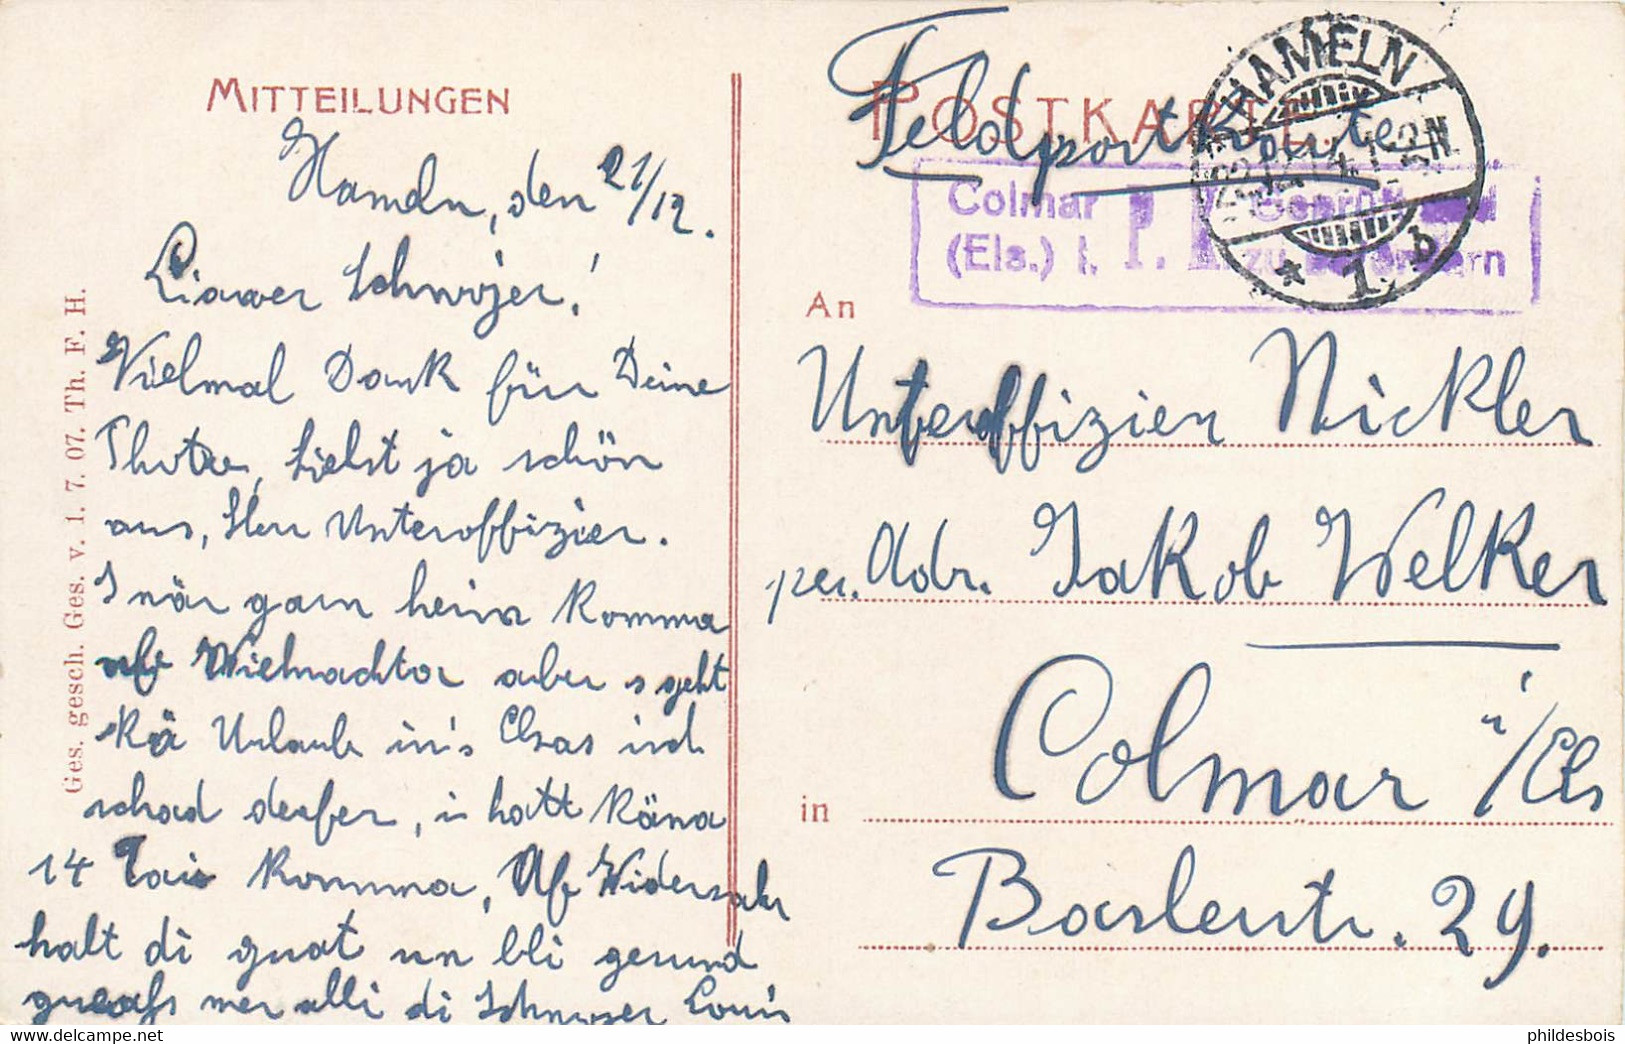 MITTEILUNGEN
Hameln, den 21/12.
Liawer Schwojer!
Vielmal Dank für Deine
Photo, siehst ja schön
aus, Herr Unteroffizier.
I wär garn heim komma
uf Wiehnachta aber s geht
kä Urlaub in's Elsas isch
schad derfer, i hatt käna
14 Tai komma, Uf Widersah
halt di guat un bli gesund
 mer alli di Schwojer Louis
Ges. gesch. Ges. v. 1. 7. 07. Th. F. H.
POSTKARTE.
Feldpostkarte
HAMELN
* 1. b
Colmar P. K. Geprüft und
(Els.) i. zu befördern
An
Unteroffizier Nickler
per. Adr. Jakob Welker
in
Colmar i/Els
Baslerstr. 29.
delcampe.net
phildesbois